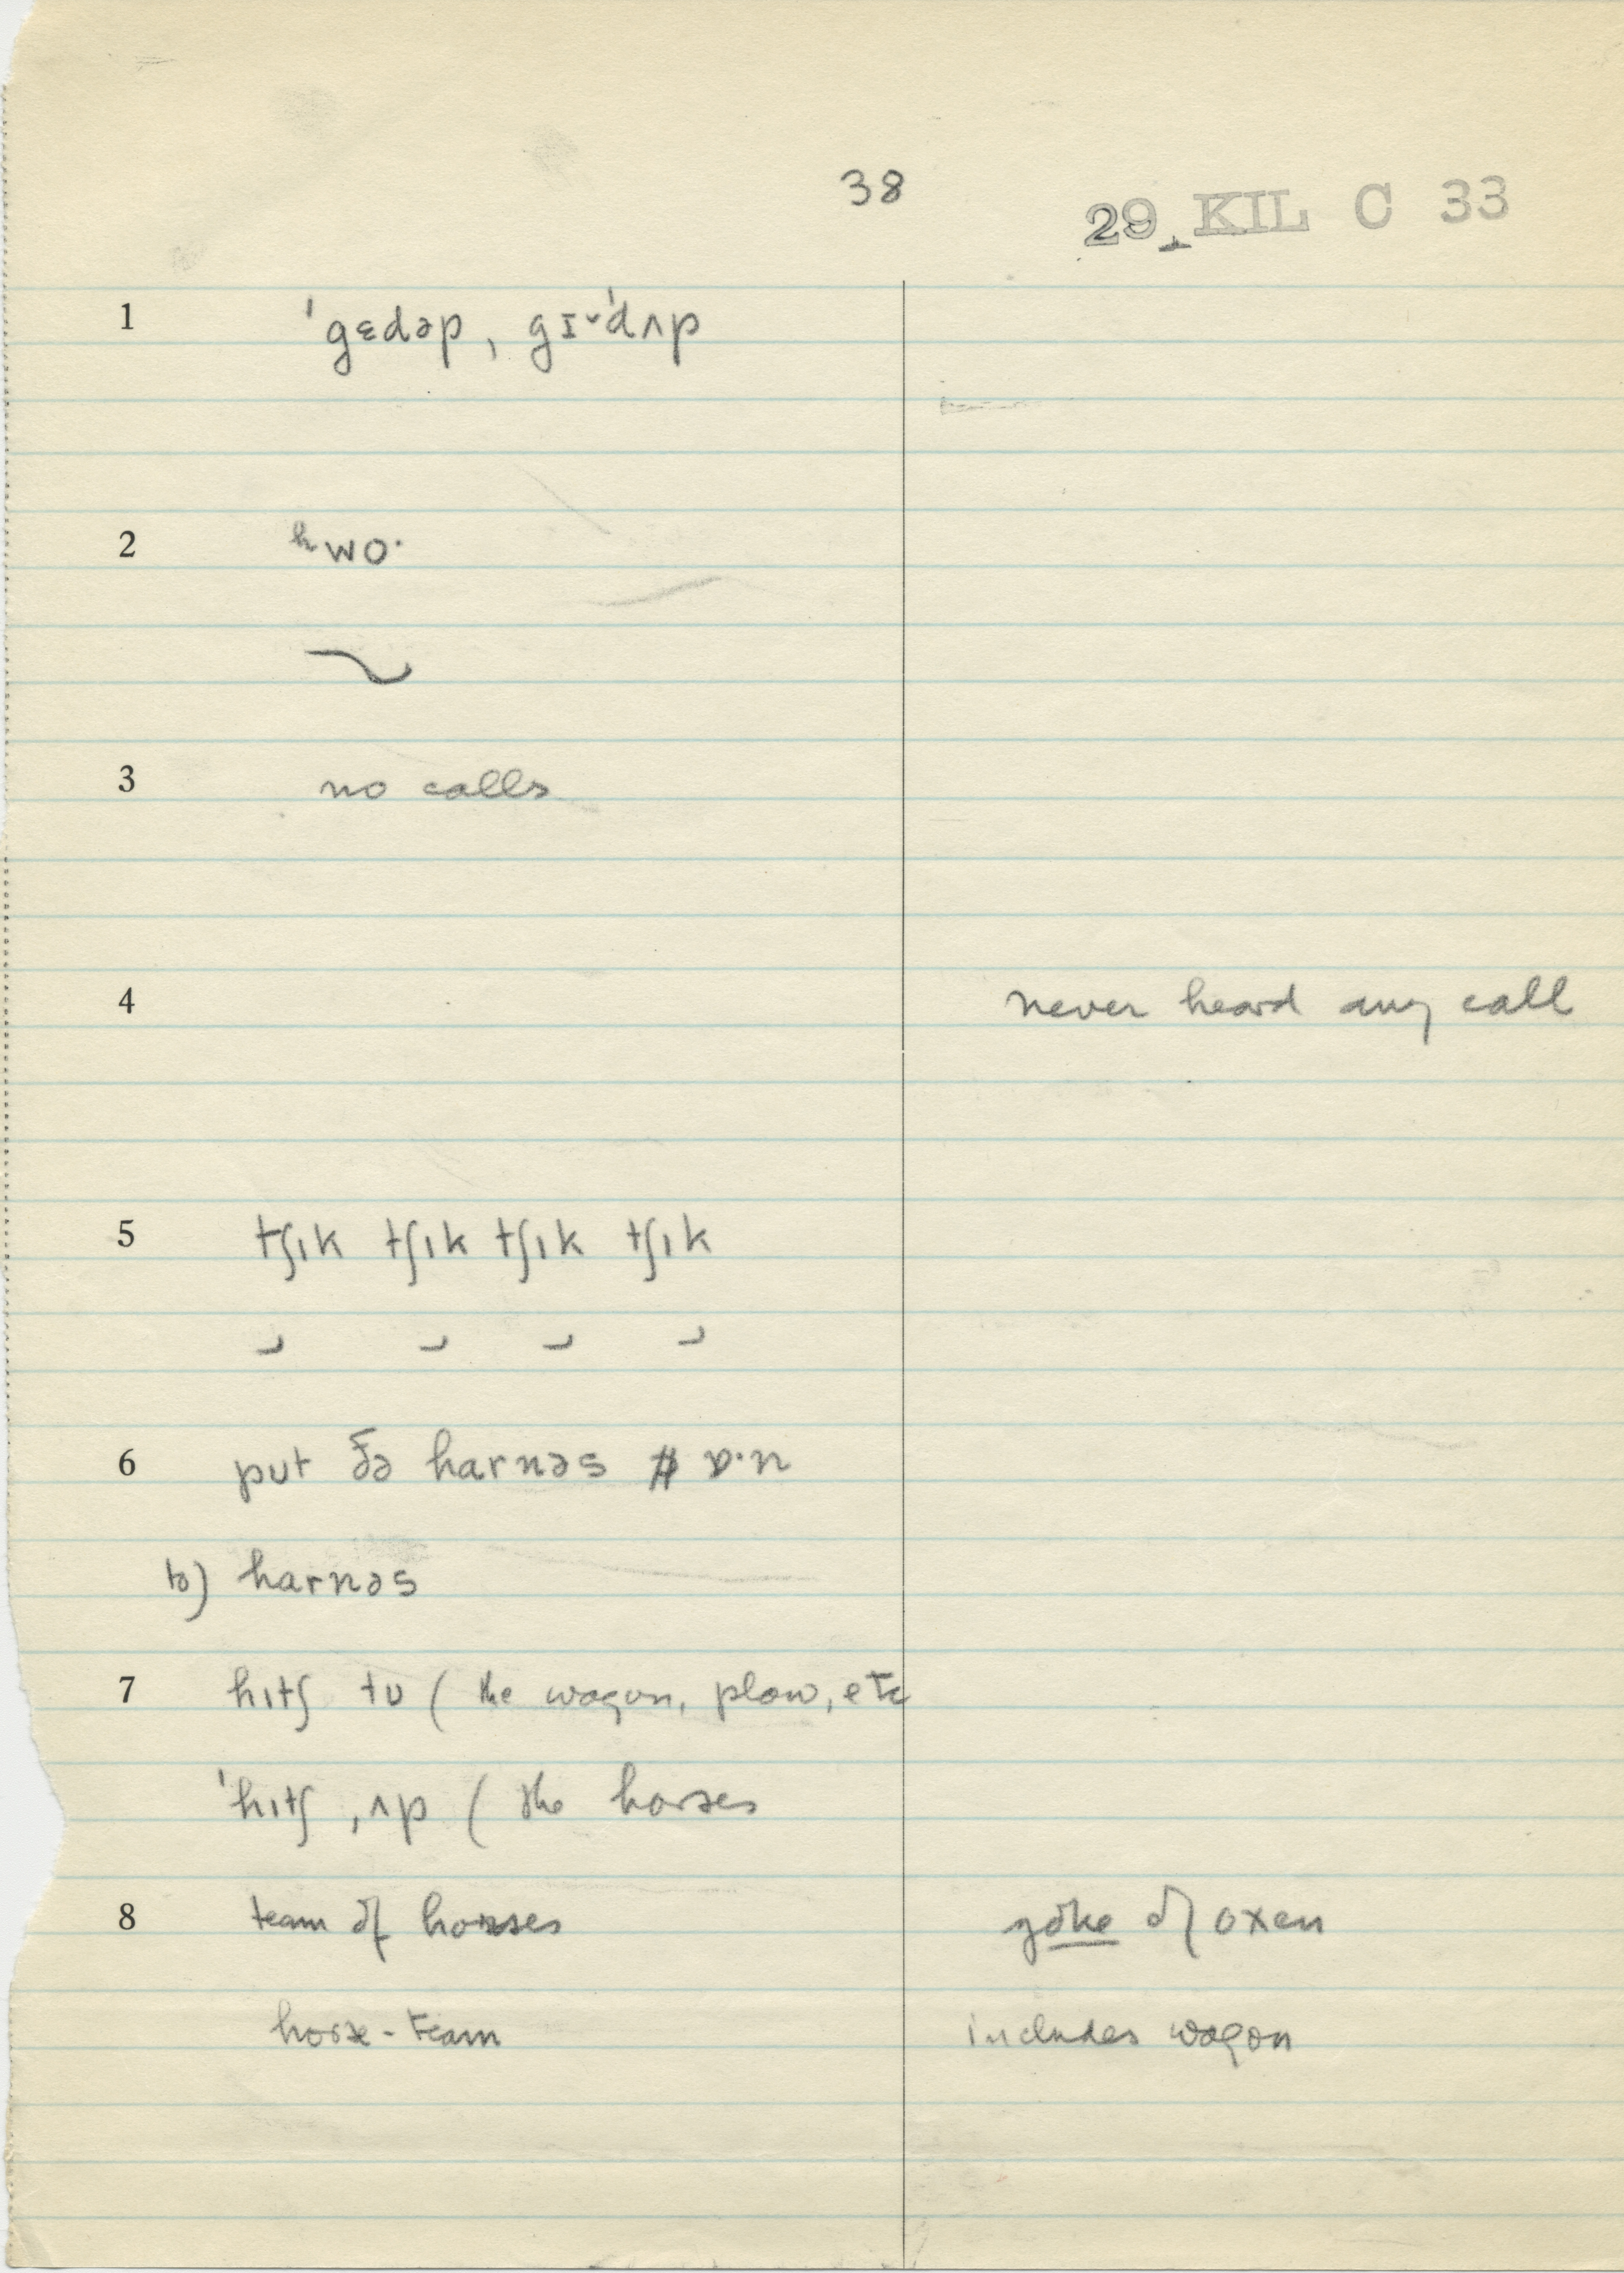 38
29 KIL C 33
1 ˈgɛdəp, gɪ˅ˈdʌp
2 ʰwo·
3 no calls
4 never heard any call
5 tʃɪk tʃɪk tʃɪk tʃɪk
6 pʊt ðə harnəs ɒ·n
b) harnəs
7 hɪtʃ tʊ ( the wagon, plow, etc
ˈhɪtʃ ˌʌp ( the horses
8 team of horses yoke of oxen
horse-team includes wagon